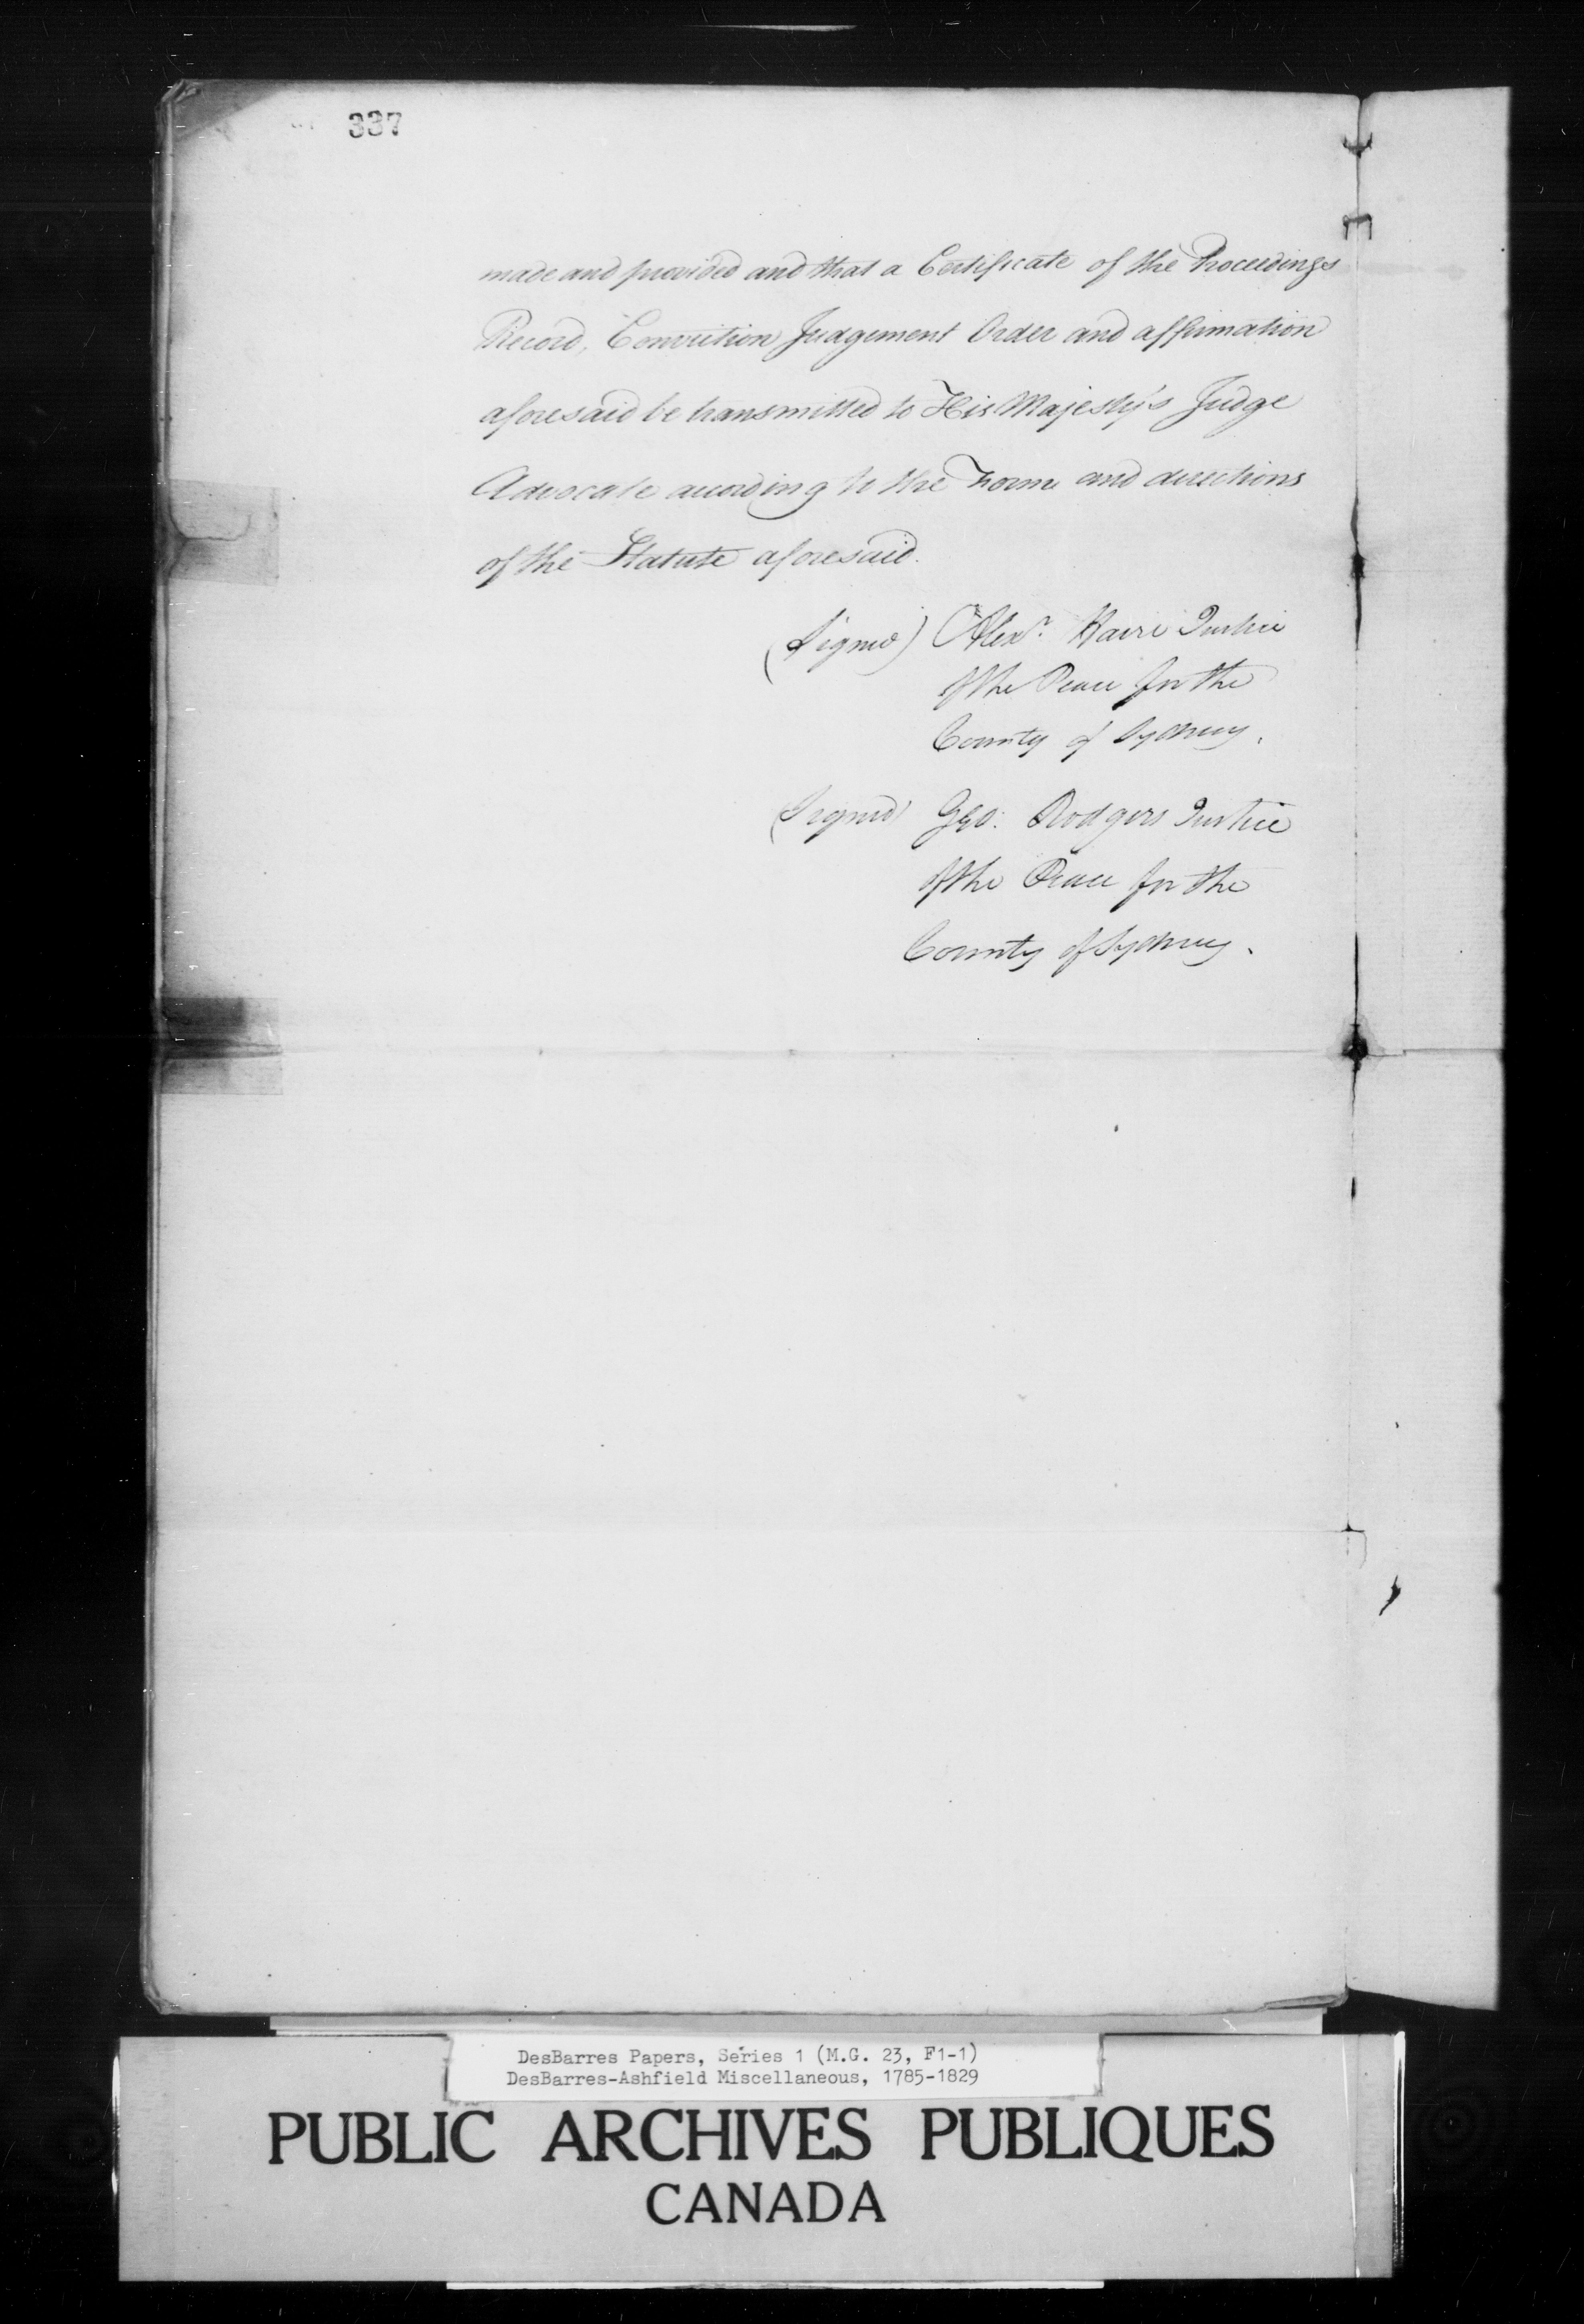 337
made and provided and that a Certificate of the Proceedings
Record, Conviction Judgement Order and affirmation
aforesaid be transmitted to His Majesty's Judge
Advocate according to the Form and directions
of the Statute aforesaid.
(Signed) Alexr. Justice
of the Peace for the
County of Sydney.
(Signed) Geo: Rodgers Justice
of the Peace for the
County of Sydney.
DesBarres Papers, Series 1 (M.G. 23, F1-1)
DesBarres-Ashfield Miscellaneous, 1785-1829
PUBLIC ARCHIVES PUBLIQUES
CANADA